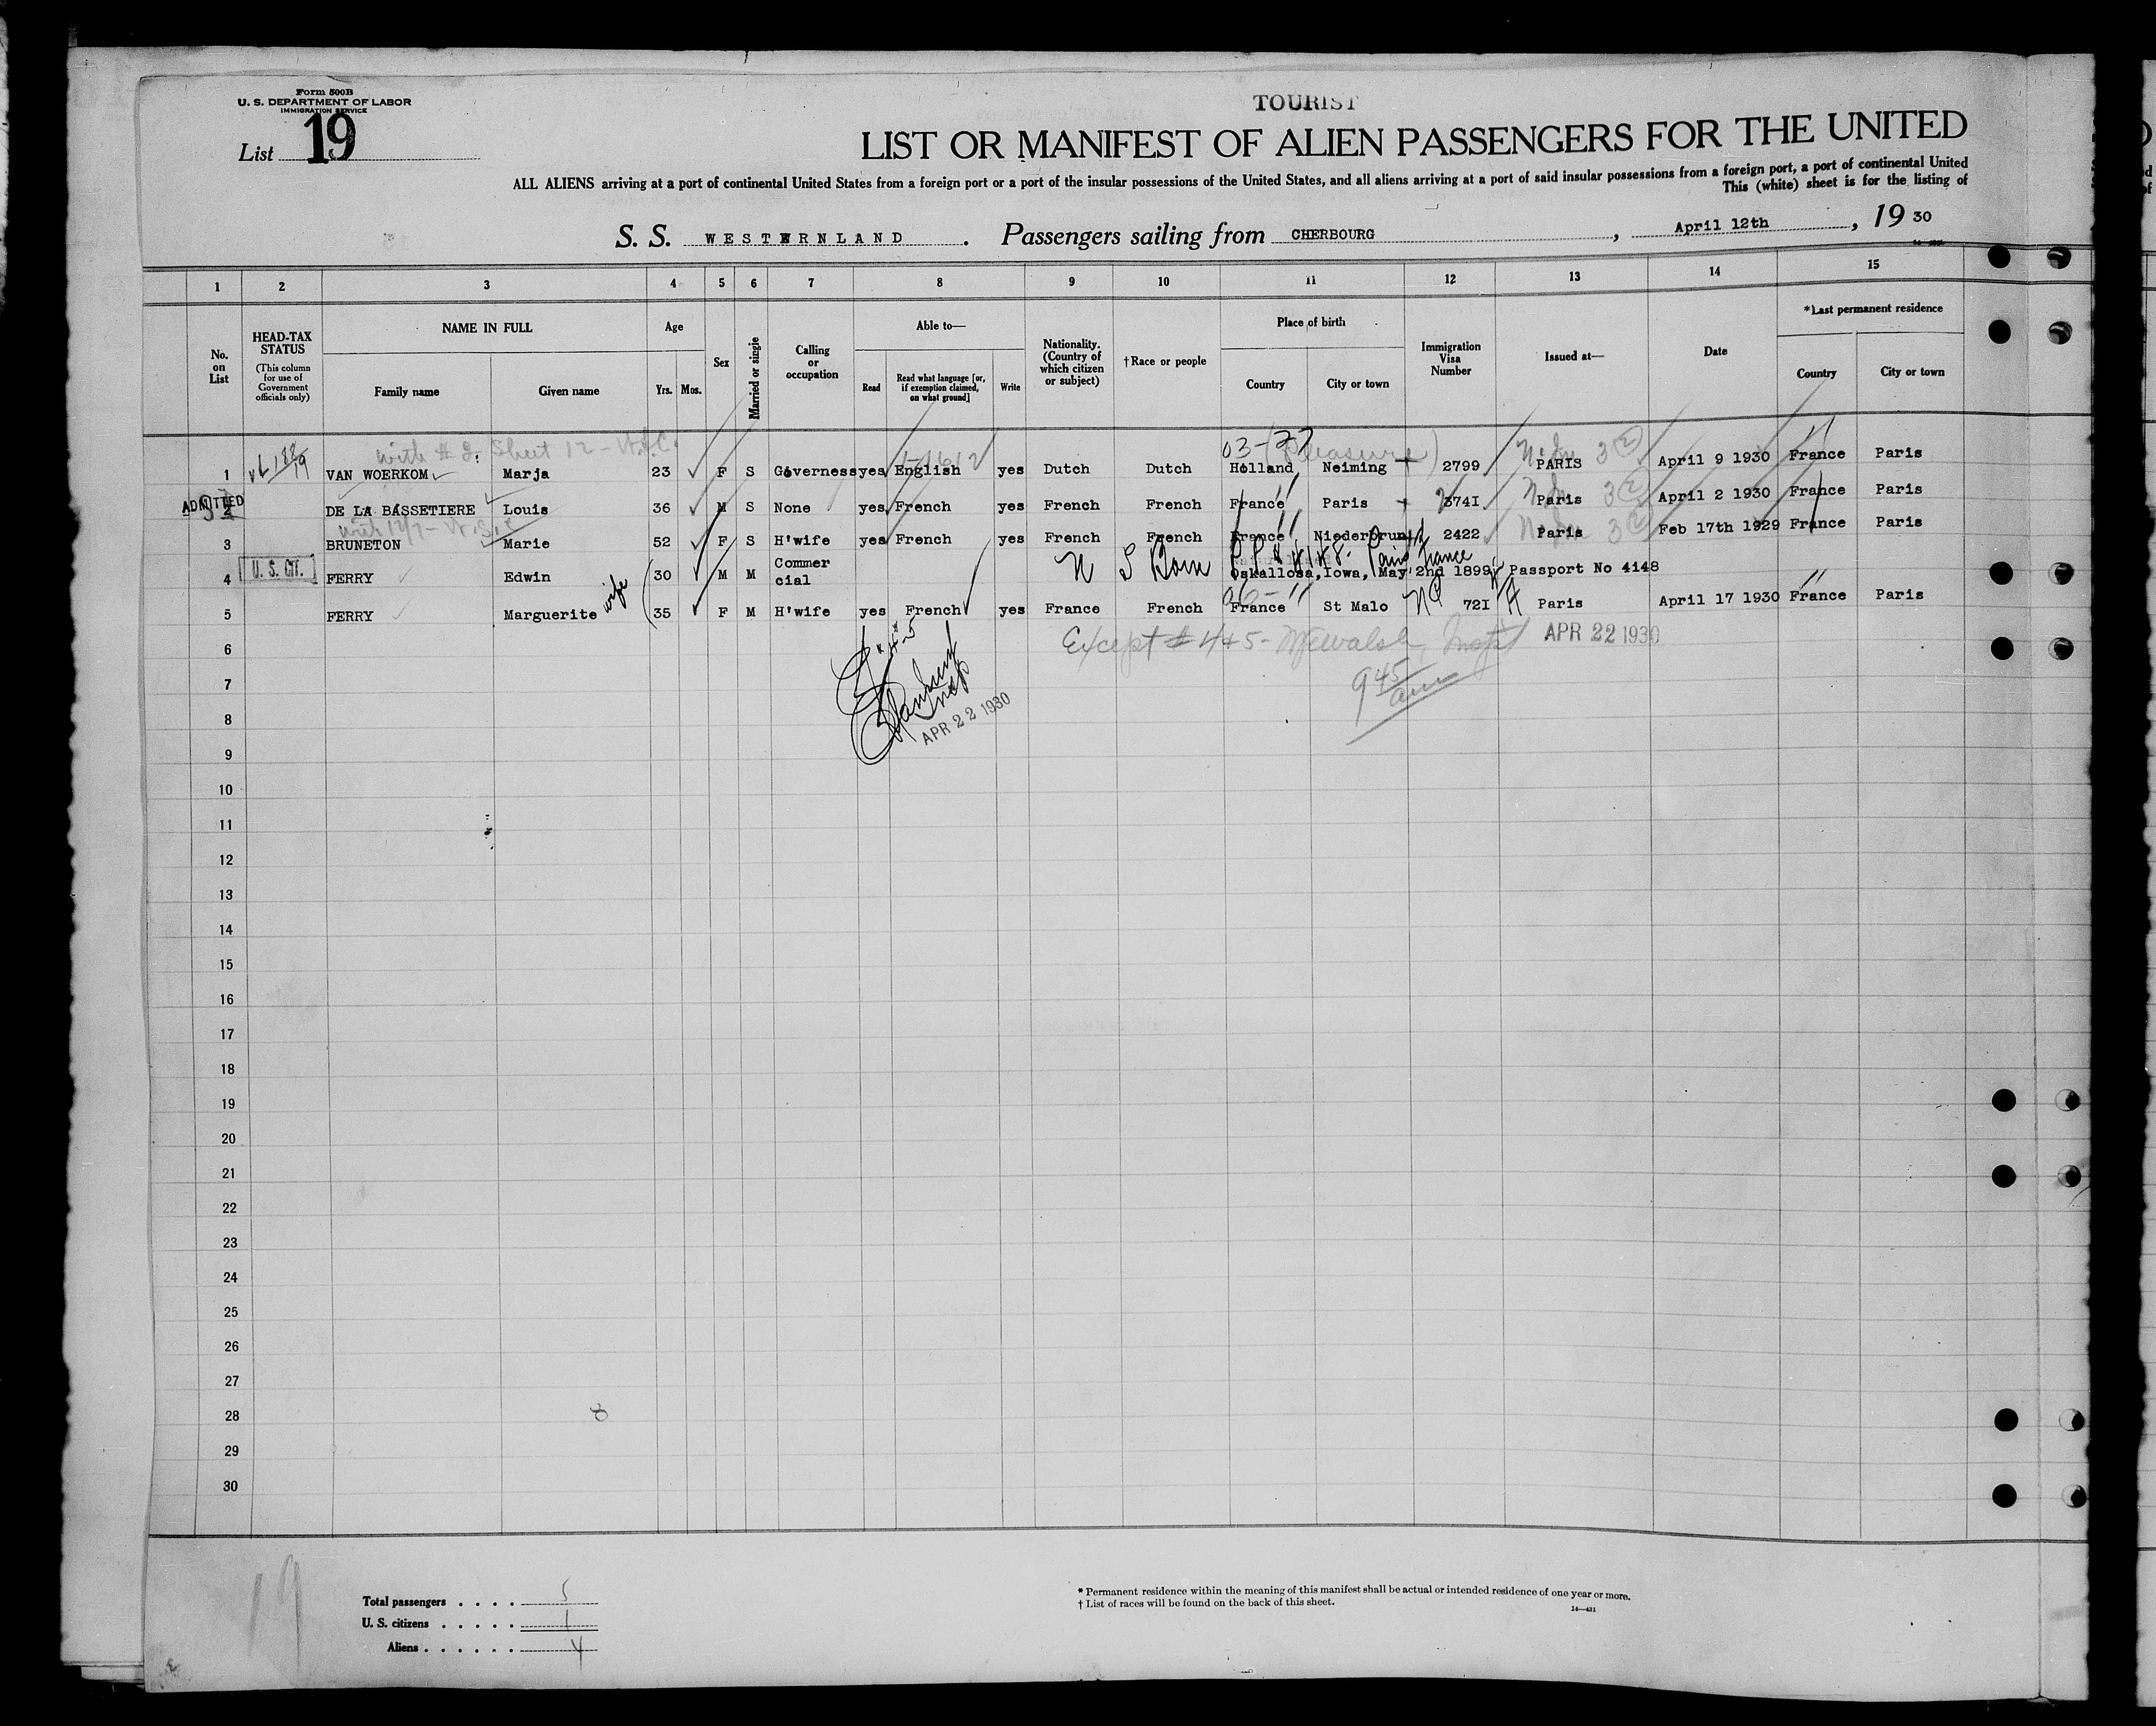 Form 500B
U. S. DEPARTMENT OF LABOR
IMMIGRATION SERVICE
List 19
TOURIST
LIST OR MANIFEST OF ALIEN PASSENGERS FOR THE UNITED
ALL ALIENS arriving at a port of continental United States from a foreign port or a port of the insular possessions of the United States, and all aliens arriving at a port of said insular possessions from a foreign port, a port of continental United
This (white) sheet is for the listing of
S. S. WESTERNLAND . Passengers sailing from CHERBOURG , April 12th , 19 30
1 2 3 4 5 6 7 8 9 10 11 12 13 14 15
No. on List
HEAD-TAX STATUS
(This column for use of Government officials only)
NAME IN FULL
Family name Given name
Age
Yrs. Mos.
Sex
Married or single
Calling or occupation
Able to—
Read Read what language [or, if exemption claimed, on what ground] Write
Nationality. (Country of which citizen or subject)
†Race or people
Place of birth
Country City or town
Immigration Visa Number
Issued at—
Date
*Last permanent residence
Country City or town
with # 2 Sheet 12 - 03-77 (Pleasure)
1 VAN WOERKOM Marja 23 F S Governess yes English yes Dutch Dutch Holland Neiming 2799 PARIS April 9 1930 France Paris
ADMITTED
2 DE LA BASSETIERE Louis 36 M S None yes French yes French French France Paris 374I Paris April 2 1930 France Paris
3 BRUNETON Marie 52 F S H'wife yes French yes French French France Niederbrunn 2422 Paris Feb 17th 1929 France Paris
U. S. CIT.
4 FERRY Edwin 30 M M Commer cial Born Paris, France
Oskallosa, Iowa, May 2nd 1899 Passport No 4148
5 FERRY Marguerite wife 35 F M H'wife yes French yes France French France St Malo 72I Paris April 17 1930 France Paris
Except # 4+5- APR 22 1930
9 45 am
APR 22 1930
6
7
8
9
10
11
12
13
14
15
16
17
18
19
20
21
22
23
24
25
26
27
28
29
30
19
Total passengers . . . . 5
U. S. citizens . . . . . 1
Aliens . . . . . . 4
* Permanent residence within the meaning of this manifest shall be actual or intended residence of one year or more.
† List of races will be found on the back of this sheet.
14—421